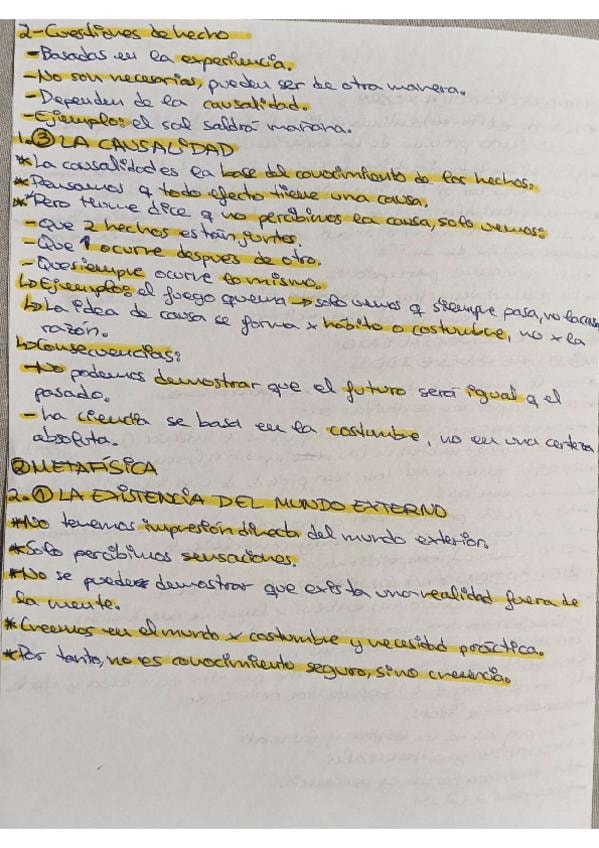 2-Cuestiones de hecho
-Basadas en la experiencia.
-No son necesarias, pueden ser de otra manera.
-Dependen de la causalidad.
-Ejemplo: el sol saldrá mañana.
1.③ LA CAUSALIDAD
*La causalidad es la base del conocimiento de los hechos.
*Pensamos q todo efecto tiene una causa.
*Pero Hume dice q no percibimos la causa, solo vemos:
-Que 2 hechos están juntos.
-Que 1 ocurre después de otro.
-Que siempre ocurre lo mismo.
↳Ejemplo: el fuego quema → solo vemos q siempre pasa, no la causa
↳La idea de causa se forma x hábito o costumbre, no x la
razón.
↳Consecuencias:
-No podemos demostrar que el futuro será igual q el
pasado.
-La ciencia se basa en la costumbre, no en una certeza
absoluta.
② METAFÍSICA
2.① LA EXISTENCIA DEL MUNDO EXTERNO
*No tenemos impresión directa del mundo exterior.
*Solo percibimos sensaciones.
*No se puede demostrar que exista una realidad fuera de
la mente.
*Creemos en el mundo x costumbre y necesidad práctica.
*Por tanto, no es conocimiento seguro, sino creencia.